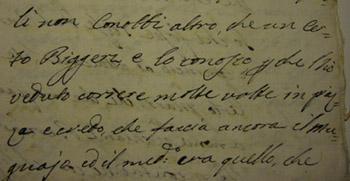 li non conobbi altro, che un cer-
to Biggeri e lo conosco p che l'hò
veduto correre molte volte in piaz-
za e credo, che faccia ancora il mu-
gnajo ed il med.º era quello, che